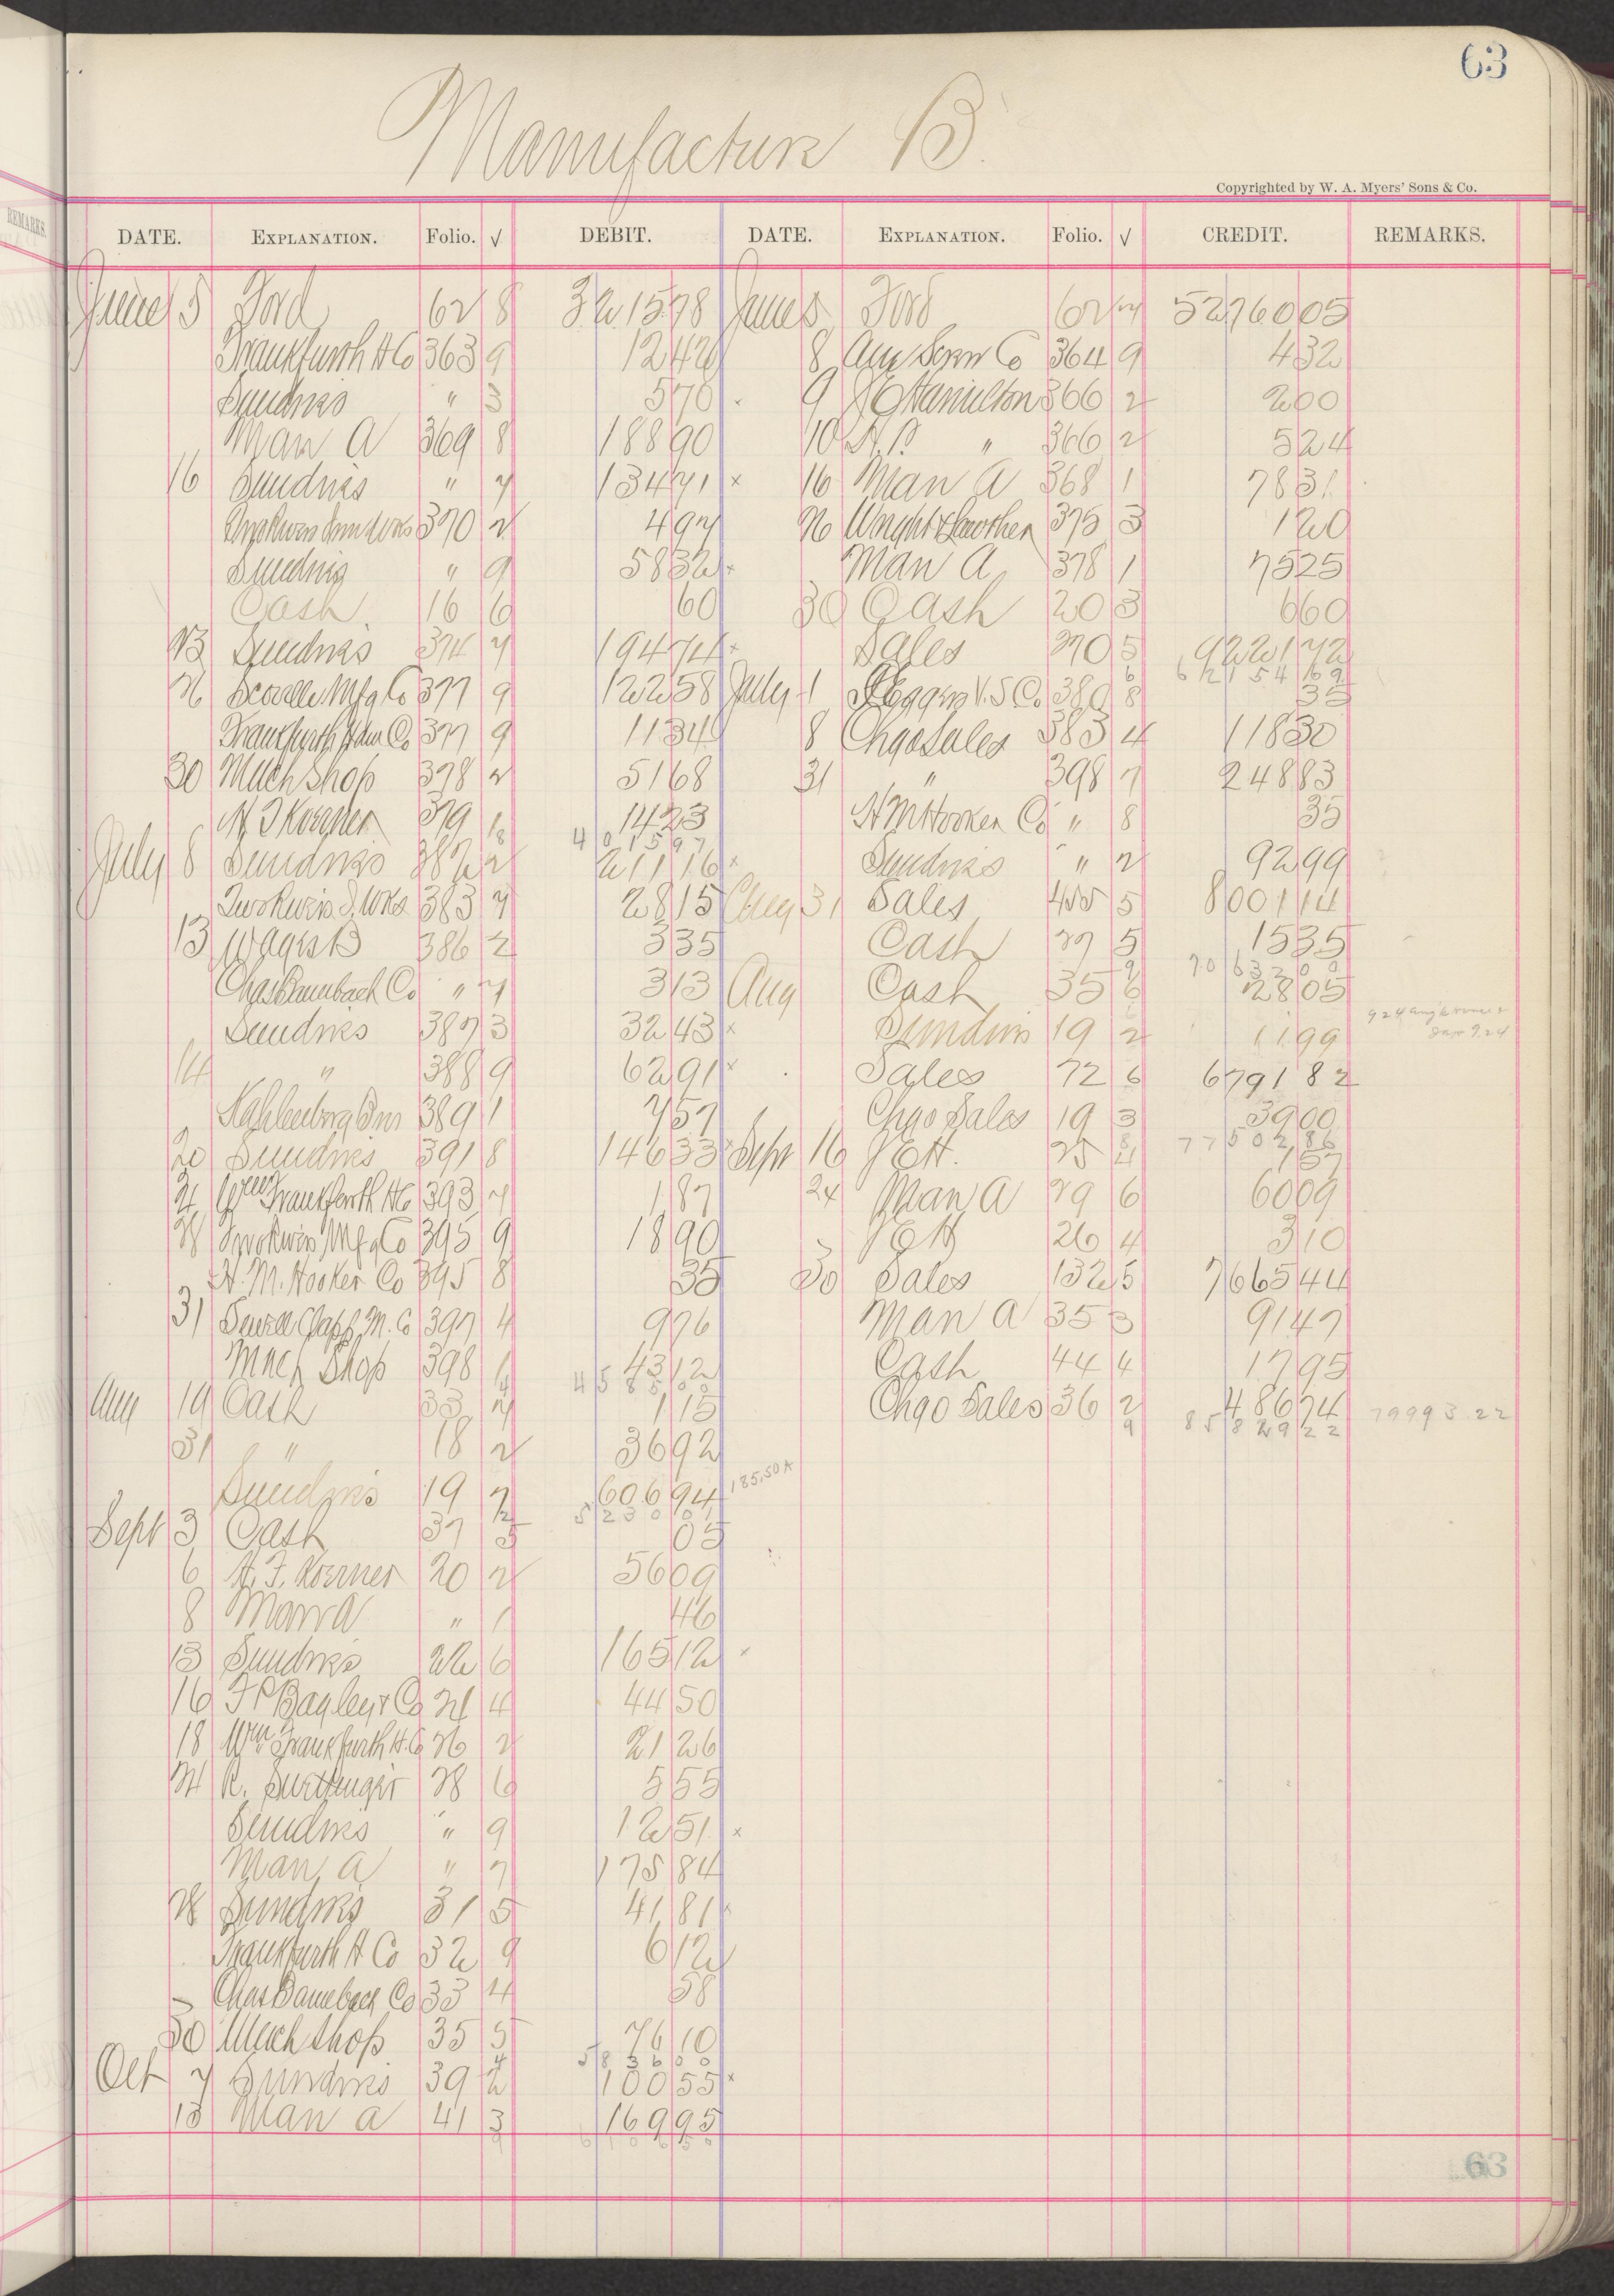 63
Manufacture B.
Copyrighted by W. A. Myers' Sons & Co.
DATE. EXPLANATION. Folio. √ DEBIT. DATE. EXPLANATION. Folio. √ CREDIT. REMARKS.
June 5 Ford 62 8 321578 June 5 Ford 62 5276005
Frankfurth H Co 363 9 1242 8 Am Screw Co 364 9 432
Sundries " 3 576 9 J E Hamilton 366 2 200
Man A 369 8 18890 10 " 366 2 524
16 Sundries " 7 13471 × 16 Man A 368 1 7831
370 2 497 26 Wright & Lawther 375 3 120
Sundries " 9 5832 × Man A 378 1 7525
Cash 16 6 60 30 Cash 20 3 660
23 Sundries 374 7 19474 × Sales 270 5 922172
6215469
26 Scoville Mfg Co 377 9 12258 July 1 V. S Co 380 8 35
Frankfurth Hdw Co 377 9 1134 8 Chgo Sales 383 4 11830
30 Mach Shop 378 2 5168 31 " 398 7 24883
H F Koerner 379 1 1423 H M Hooker Co " 8 35
401597
July 8 Sundries 382 2 21116 × Sundries " 2 9299
Two Rivers I. Wks 383 7 2815 Aug 31 Sales 455 5 800114
13 Wages B 386 2 335 Cash 27 5 1535
7063200
Chas Baumbach Co " 7 313 Aug Cash 35 6 2805
Sundries 387 3 3243 × Sundries 19 2 1199
14 " 388 9 6291 × Sales 72 6 679182
Kahlenberg Bros 389 1 757 Chgo Sales 19 3 3900
7750286
20 Sundries 391 8 14633 × Sept 16 J E H. 25 4 157
21 Wm Frankfurth H Co 393 7 187 24 Man A 29 6 6009
28 Two Rivers Mfg Co 395 9 1890 J E H 26 4 310
H. M. Hooker Co 395 8 35 30 Sales 132 5 766544
31 397 4 976 Man A 35 3 9147
Mach Shop 398 1 4312 Cash 44 4 1795
Aug 19 Cash 33 7 115 Chgo Sales 36 2 48674
8582922 79993.22
31 " 18 2 3692
Sundries 19 7 60694 185.50
Sept 3 Cash 37 5 05
6 H. F. Koerner 20 2 5609
8 Man A " 1 46
13 Sundries 22 6 16512 ×
16 F P Bagley & Co 24 4 4450
18 Wm Frankfurth H. Co 26 2 2126
24 28 6 555
Sundries " 9 1251 ×
Man A " 7 17584
28 Sundries 31 5 4181 ×
Frankfurth H Co 32 9 612
Chas Baumbach Co 33 4 58
30 Mach Shop 35 5 7610
Oct 7 Sundries 39 2 10055 ×
13 Man A 41 3 16995
63